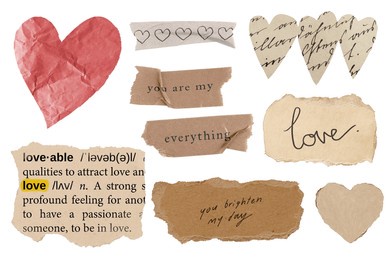 you are my
everything
love.
love·able / ˈləvəb(ə)l/
qualities to attract love an
love /lʌv/ n. A strong s
profound feeling for anot
to have a passionate
someone, to be in love.
you brighten
my day